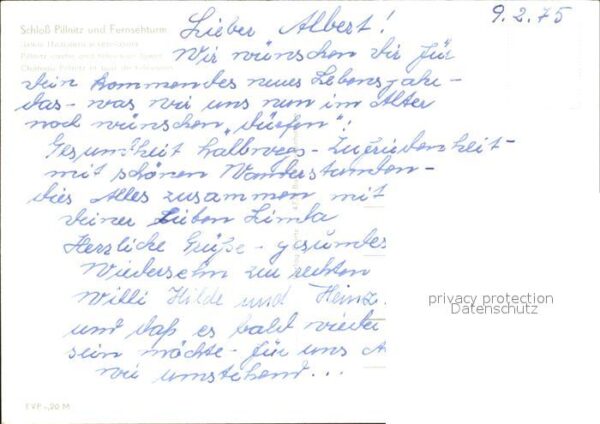 Schloß Pillnitz und Fernsehturm
9. 2. 75
Lieber Albert!
Wir wünschen Dir für
Dein kommendes neues Lebensjahr -
das - was wir uns nun im Alter
noch wünschen „dürfen"!
Gesundheit halbwegs - Zufriedenheit -
mit schönen Wanderstunden -
dies Alles zusammen mit
Deiner Lieben Limba
Herzliche Grüße - gesundes
Wiedersehn zur rechten
Willi Hilde und Heinz.
und daß es bald wieder
sein möchte - für uns A
wie umstehend...
privacy protection
Datenschutz
EVP -,20 M